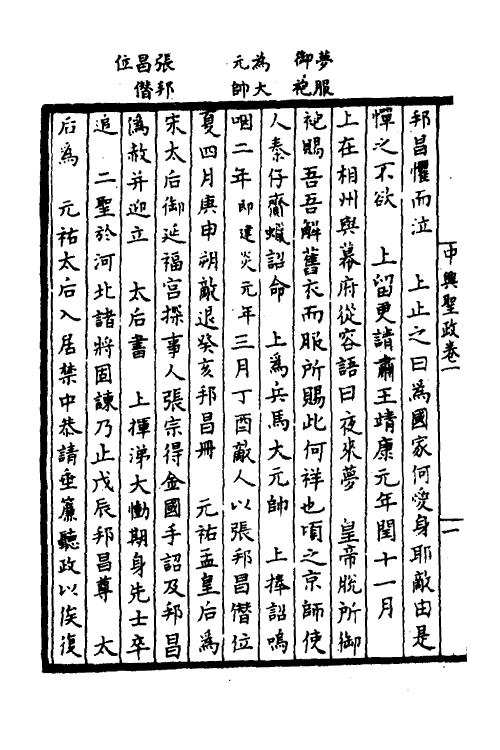 夢服
御袍
為大
元帥
張邦
昌僣
位
中興聖政卷一
一
邦昌懼而泣　上止之曰為國家何愛身耶敵由是
憚之不欲　上留更請肅王靖康元年閏十一月
上在相州與幕府從容語曰夜来夢　皇帝脫所御
袍賜吾吾解舊衣而服所賜此何祥也頃之京師使
人秦仔齎蠟詔命　上為兵馬大元帥　上捧詔嗚
咽二年即建炎元年三月丁酉敵人以張邦昌僣位
夏四月庚申朔敵退癸亥邦昌冊　元祐孟皇后為
宋太后御延福宮探事人張宗得金國手詔及邦昌
偽赦并迎立　太后書　上揮涕大慟期身先士卒
追　二聖於河北諸將固諫乃止戊辰邦昌尊　太
后為　元祐太后入居禁中恭請垂簾聽政以俟復